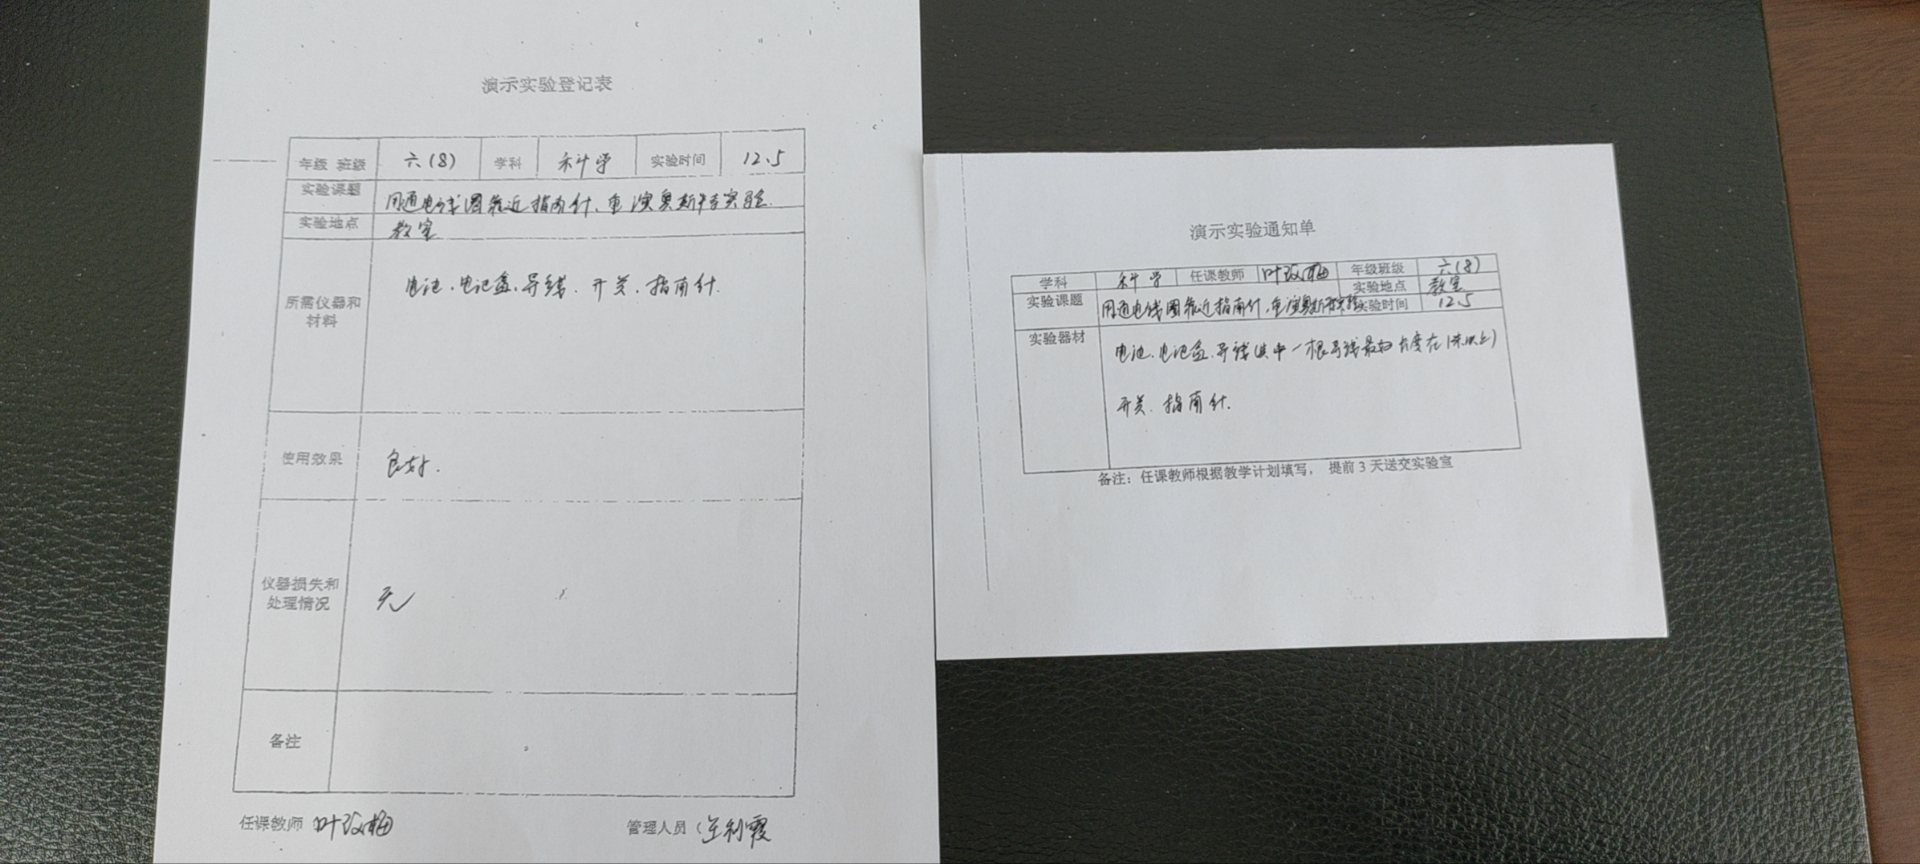 演示实验登记表
年级 班级 六(8) 学科 科学 实验时间 12.5
实验课题 用通电线圈靠近指南针、重演奥斯特实验.
实验地点 教室
所需仪器和材料 电池、电池盒、导线、开关、指南针.
使用效果 良好.
仪器损失和处理情况 无
备注
任课教师 叶
管理人员 利霞
演示实验通知单
学科 科学 任课教师 叶 年级班级 六(8)
实验地点 教室
实验课题 用通电线圈靠近指南针、重演奥斯特实验 实验时间 12.5
实验器材 电池、电池盒、导线(其中一根导线最 长度在1米以上)
开关、指南针.
备注：任课教师根据教学计划填写， 提前 3 天送交实验室